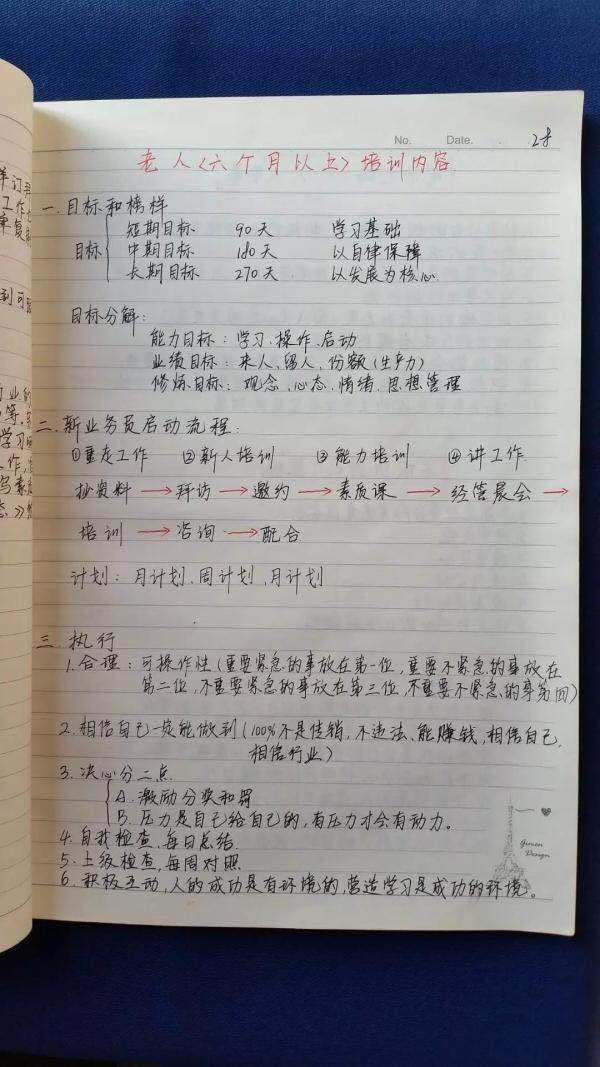 No. Date. 28
老人〈六个月以上〉培训内容
一.目标和榜样
短期目标 90天 学习基础
目标 中期目标 180天 以自律保障
长期目标 270天 以发展为核心
目标分解:
能力目标:学习、操作、启动
业绩目标:来人、留人、份额(生产力)
修炼目标:观念、心态、情绪、思想管理
二.新业务员启动流程:
①重走工作 ②新人培训 ③能力培训 ④讲工作
抄资料→拜访→邀约→素质课→经管晨会→
培训→咨询→配合
计划:月计划、周计划、月计划
三.执行
1.合理:可操作性(重要紧急的事放在第一位,重要不紧急的事放在
第二位,不重要紧急的事放在第三位,不重要不紧急的事第四)
2.相信自己一定能做到(100%不是传销,不违法、能赚钱,相信自己,
相信行业)
3.决心分二点
A.激励分奖和罚
B.压力是自己给自己的,有压力才会有动力。
4.自我检查,每日总结.
5.上级检查,每周对照
6.积极互动,人的成功是有环境的,营造学习是成功的环境。
Design